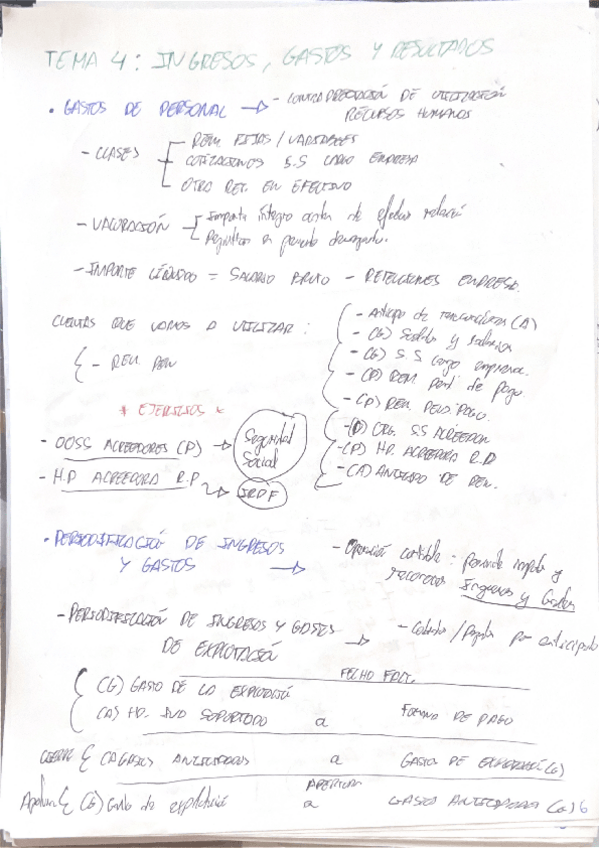 TEMA 4: INGRESOS, GASTOS Y RESULTADOS
• GASTOS DE PERSONAL → - CONTRAPRESTACIÓN DE UTILIZACIÓN
RECURSOS HUMANOS
- CLASES
REM. FIJAS / VARIABLES
COTIZACIONES S.S CARGO EMPRESA
OTRA RET. EN EFECTIVO
- VALORACIÓN
Importe íntegro antes de efectuar
Registran en periodo devengado.
- IMPORTE LÍQUIDO = SALARIO BRUTO - RETENCIONES EMPRESA.
CUENTAS QUE VAMOS A UTILIZAR:
{ - REM. PEN
- Anticipo de remuneraciones (A)
- (G) Sueldos y salarios
- (G) S.S cargo empresa.
- (P) REM. pend de pago
- (P) REM. PELO PAGO.
- (P) ORG. S.S ACREEDOR
- (P) HP. ACREEDORA R.P
- (A) ANTICIPO DE REM.
* EJERCICIOS *
- OOSS ACREEDORES (P) → Seguridad Social
- H.P ACREEDORA R.P → IRPF
• PERIODIFICACIÓN DE INGRESOS
Y GASTOS →
- Operación contable: permite imputar y
reconocer Ingresos y Gastos
- PERIODIFICACIÓN DE INGRESOS Y GASTOS
DE EXPLOTACIÓN →
- Cobrados / Pagados por anticipado
FECHA FACT.
(G) GASTO DE LA EXPLOTACIÓN
(A) HP. IVA SOPORTADO a FORMA DE PAGO
CIERRE { (A) GASTOS ANTICIPADOS a GASTOS DE EXPLOTACIÓN (G)
APERTURA
Apertura { (G) Gasto de explotación a GASTOS ANTICIPADOS (G) 6